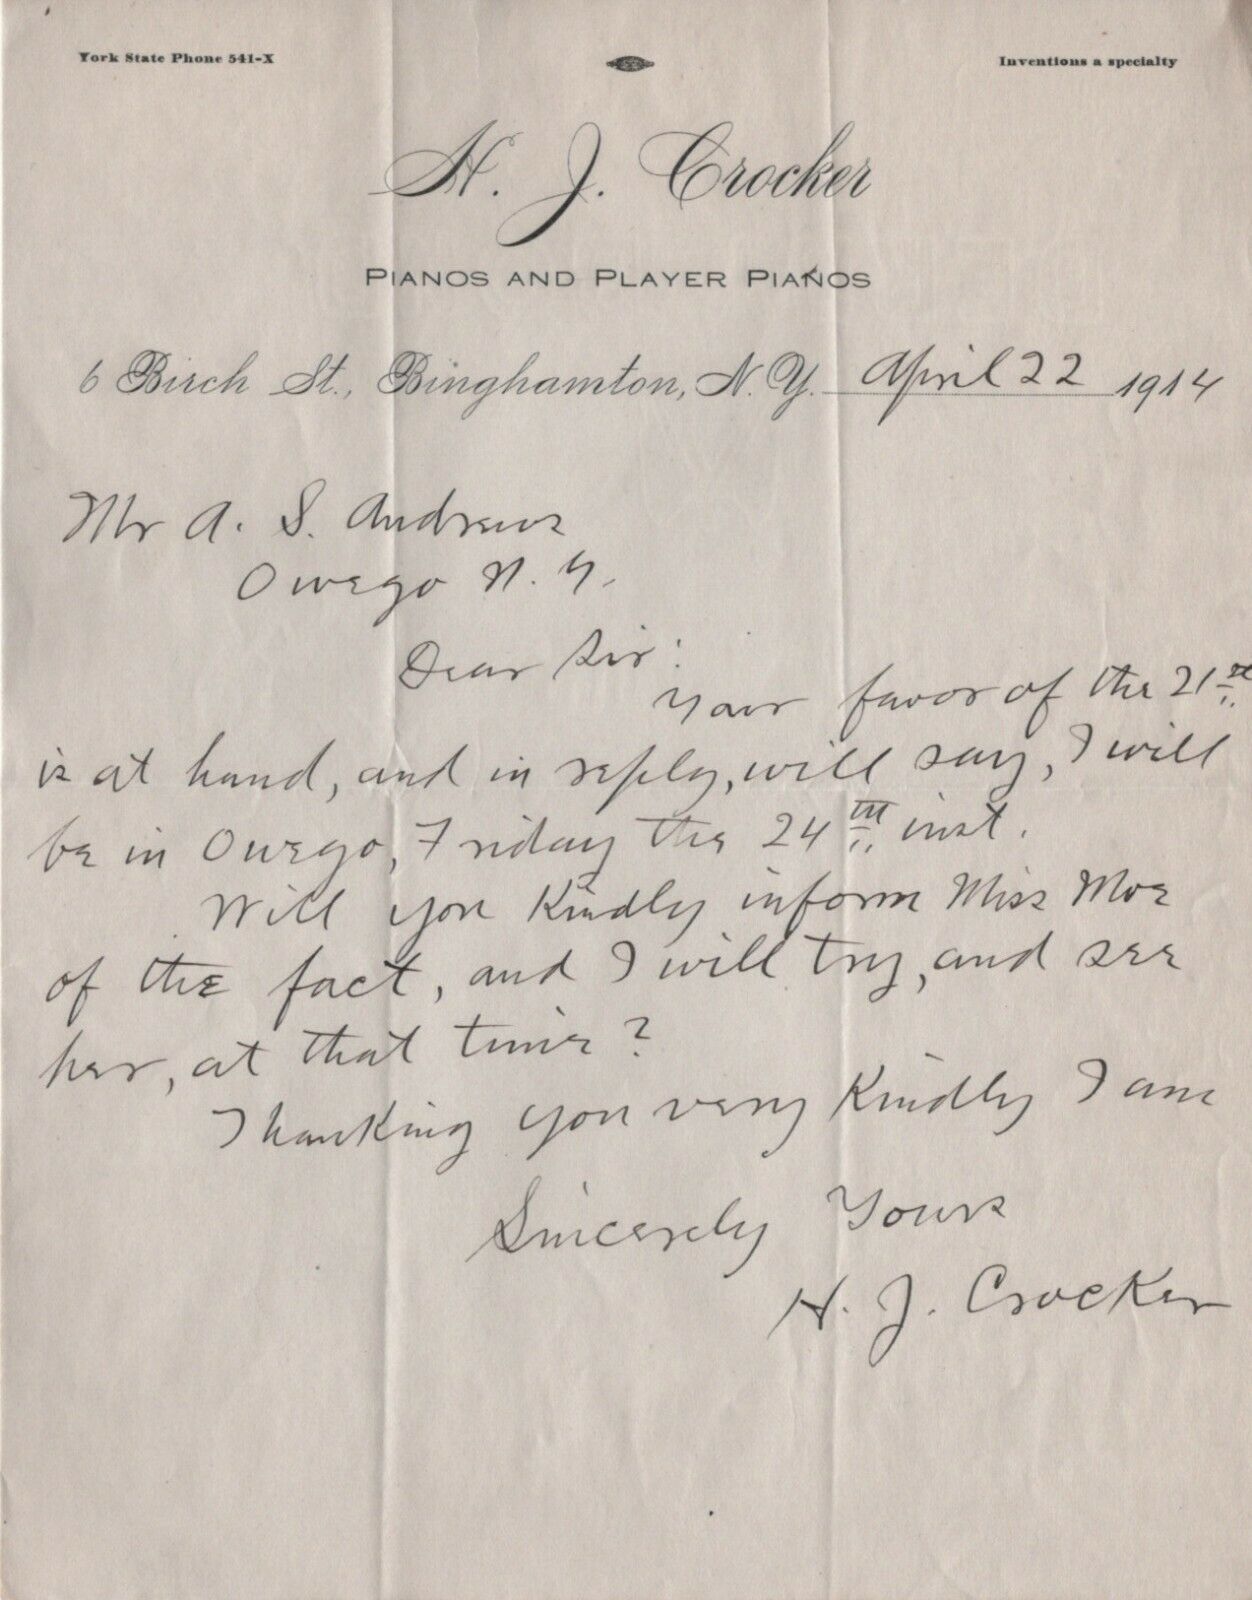 York State Phone 541-X
Inventions a specialty
H. J. Crocker
PIANOS AND PLAYER PIANOS
6 Birch St., Binghamton, N. Y. April 22 1914
Mr A. S. Andrews
Owego N. Y.
Dear Sir:
Your favor of the 21st
is at hand, and in reply, will say, I will
be in Owego, Friday the 24th inst.
Will you Kindly inform Miss Moe
of the fact, and I will try, and see
her, at that time?
Thanking you very Kindly I am
Sincerely Yours
H. J. Crocker